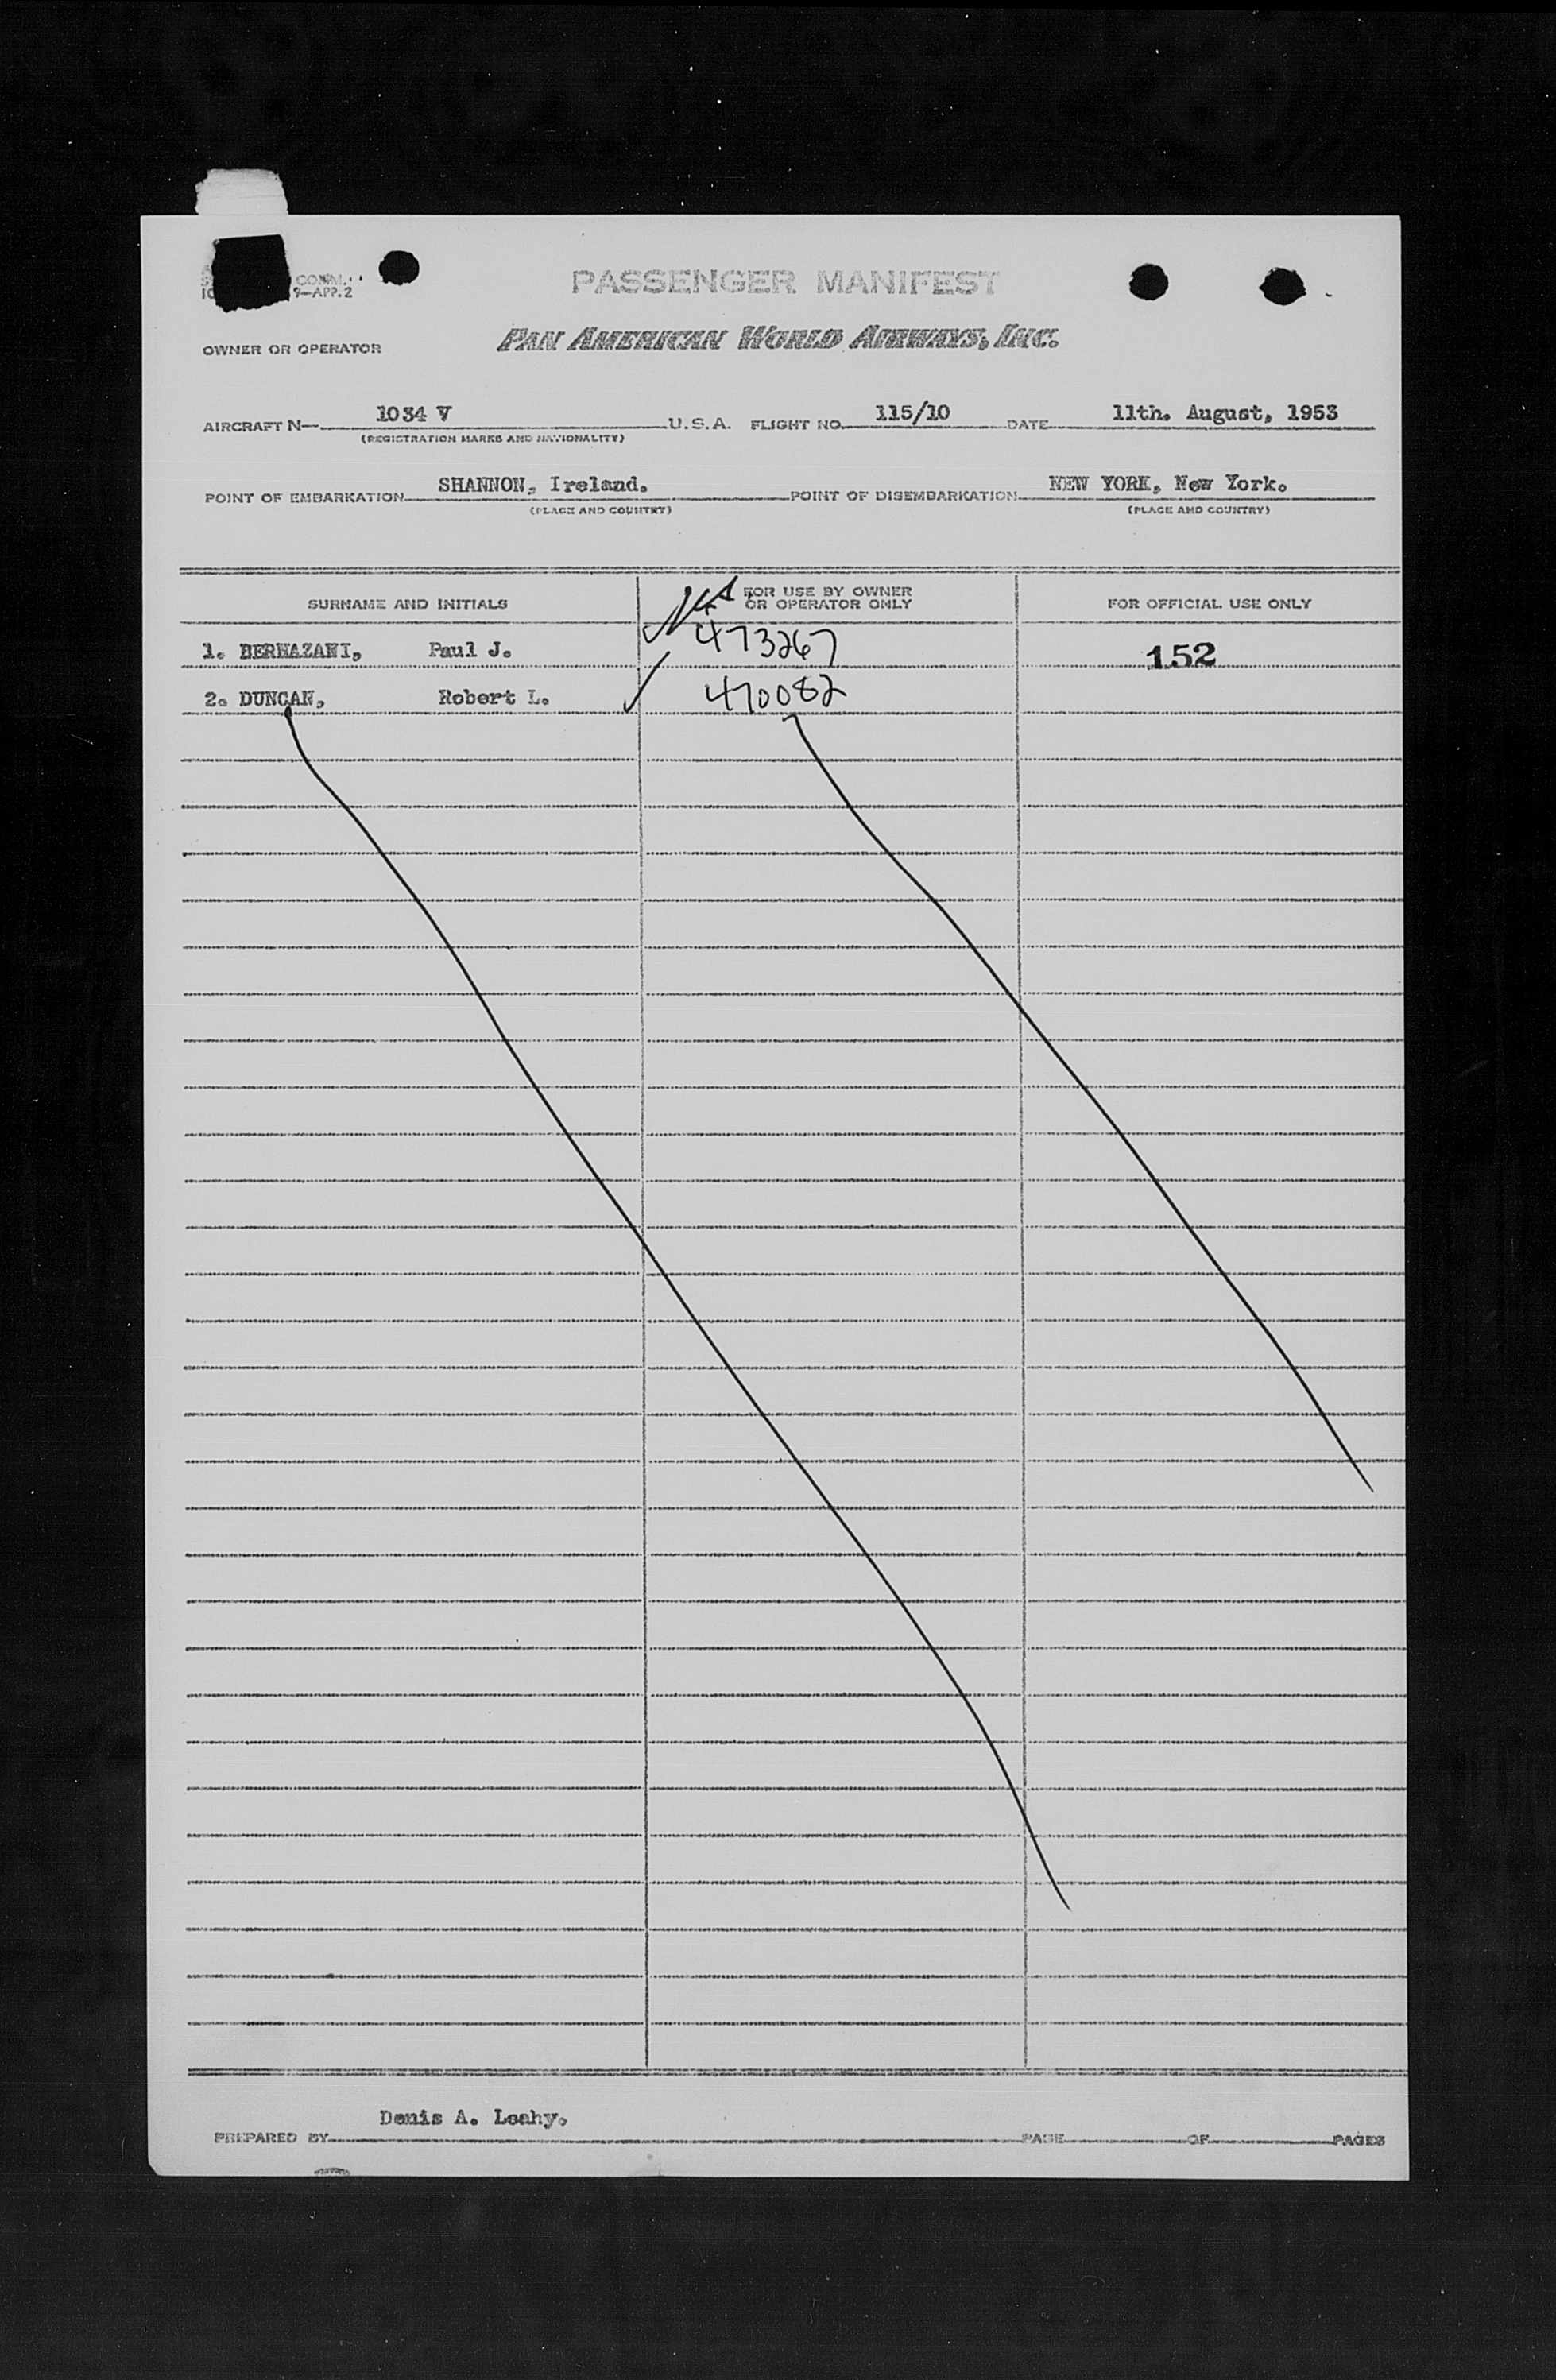 COMM.
9-APP.2
PASSENGER MANIFEST
OWNER OR OPERATOR PAN AMERICAN WORLD AIRWAYS, INC.
AIRCRAFT N- 1034 V U.S.A. FLIGHT NO. 115/10 DATE 11th. August, 1953
(REGISTRATION MARKS AND NATIONALITY)
POINT OF EMBARKATION SHANNON, Ireland. POINT OF DISEMBARKATION NEW YORK, New York.
(PLACE AND COUNTRY) (PLACE AND COUNTRY)
SURNAME AND INITIALS FOR USE BY OWNER OR OPERATOR ONLY FOR OFFICIAL USE ONLY
1. Paul J. 473267 152
2. DUNCAN, Robert L. 470082
PREPARED BY Denis A. Leahy. PAGE OF PAGES